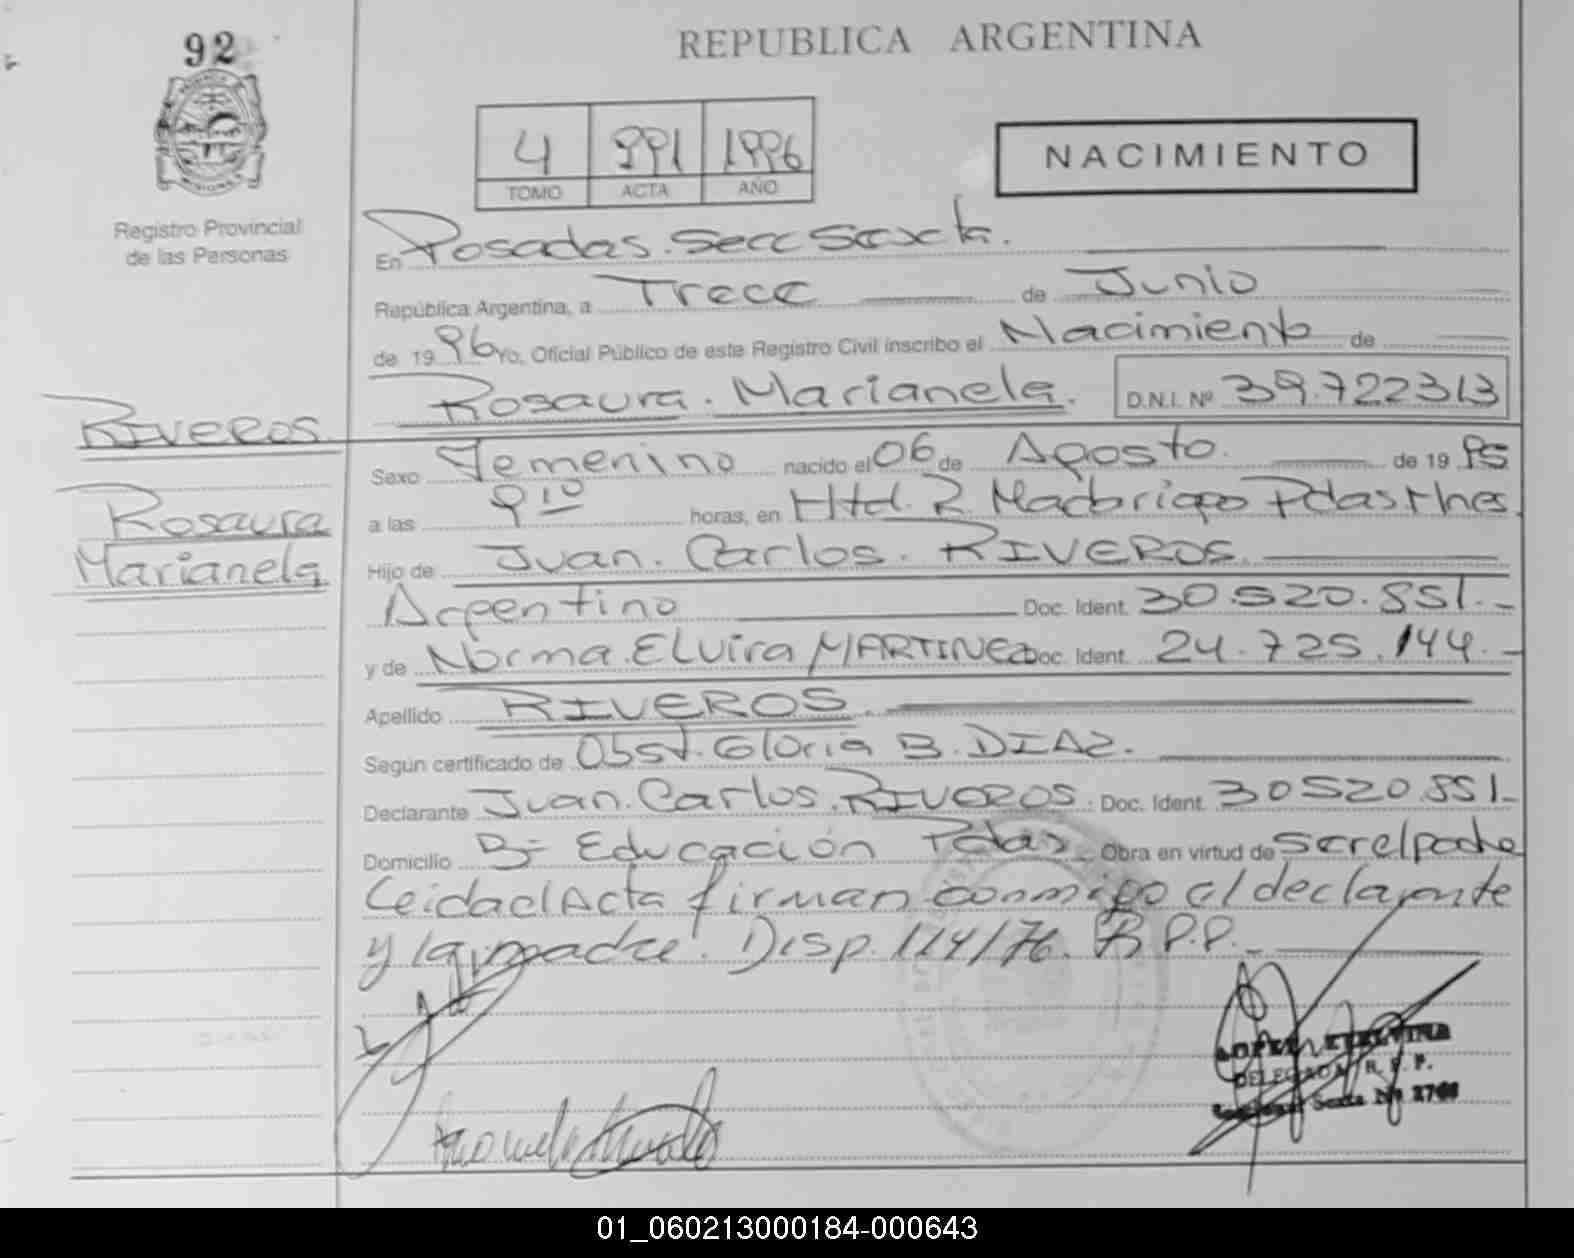 92
REPUBLICA ARGENTINA
4 991 1996
TOMO ACTA AÑO
NACIMIENTO
Registro Provincial
de las Personas
En Posadas. Secc Sexta.
República Argentina, a Trece de Junio
de 19 96 Yo, Oficial Público de este Registro Civil inscribo el Nacimiento de
Rosaura. Marianela. D.N.I. Nº 39.722313
RIVEROS.
Rosaura
Marianela
Sexo Femenino nacido el 06 de Agosto. de 19 95
a las 9 10 horas, en Htal. R. Madariaga Pdas Mnes.
Hijo de Juan. Carlos. RIVEROS.
Argentino Doc. Ident. 30.520.851.-
y de Norma. Elvira MARTINEZ Doc. Ident. 24.725.144.-
Apellido RIVEROS.
Según certificado de Obst. Gloria B. DIAZ.
Declarante Juan. Carlos. RIVEROS. Doc. Ident. 30520.851-
Domicilio Bº Educación Pdas Obra en virtud de ser el padre
Leida el Acta firman conmigo el declarante
y la madre. Disp. 114/76. R.P.P.-
LOPEZ ETELVINA
DELEGADA R. P. P.
Seccional Sexta Nº
01_060213000184-000643